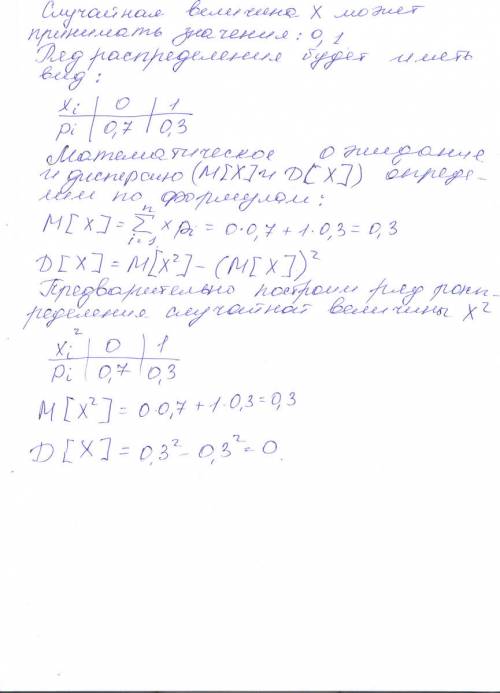 Случайная величина X может
принимать значения: 0, 1
Ряд распределения будет иметь
вид:
xi | 0 | 1
pi | 0,7 | 0,3
Математическое ожидание
и дисперсию (M[X] и D[X]) опреде-
лим по формулам:
M[X] = n∑i=1 x pi = 0·0,7 + 1·0,3 = 0,3
D[X] = M[X²] - (M[X])²
Предварительно построим ряд расп-
ределения случайной величины X²
xi² | 0 | 1
pi | 0,7 | 0,3
M[X²] = 0·0,7 + 1·0,3 = 0,3
D[X] = 0,3² - 0,3² = 0.